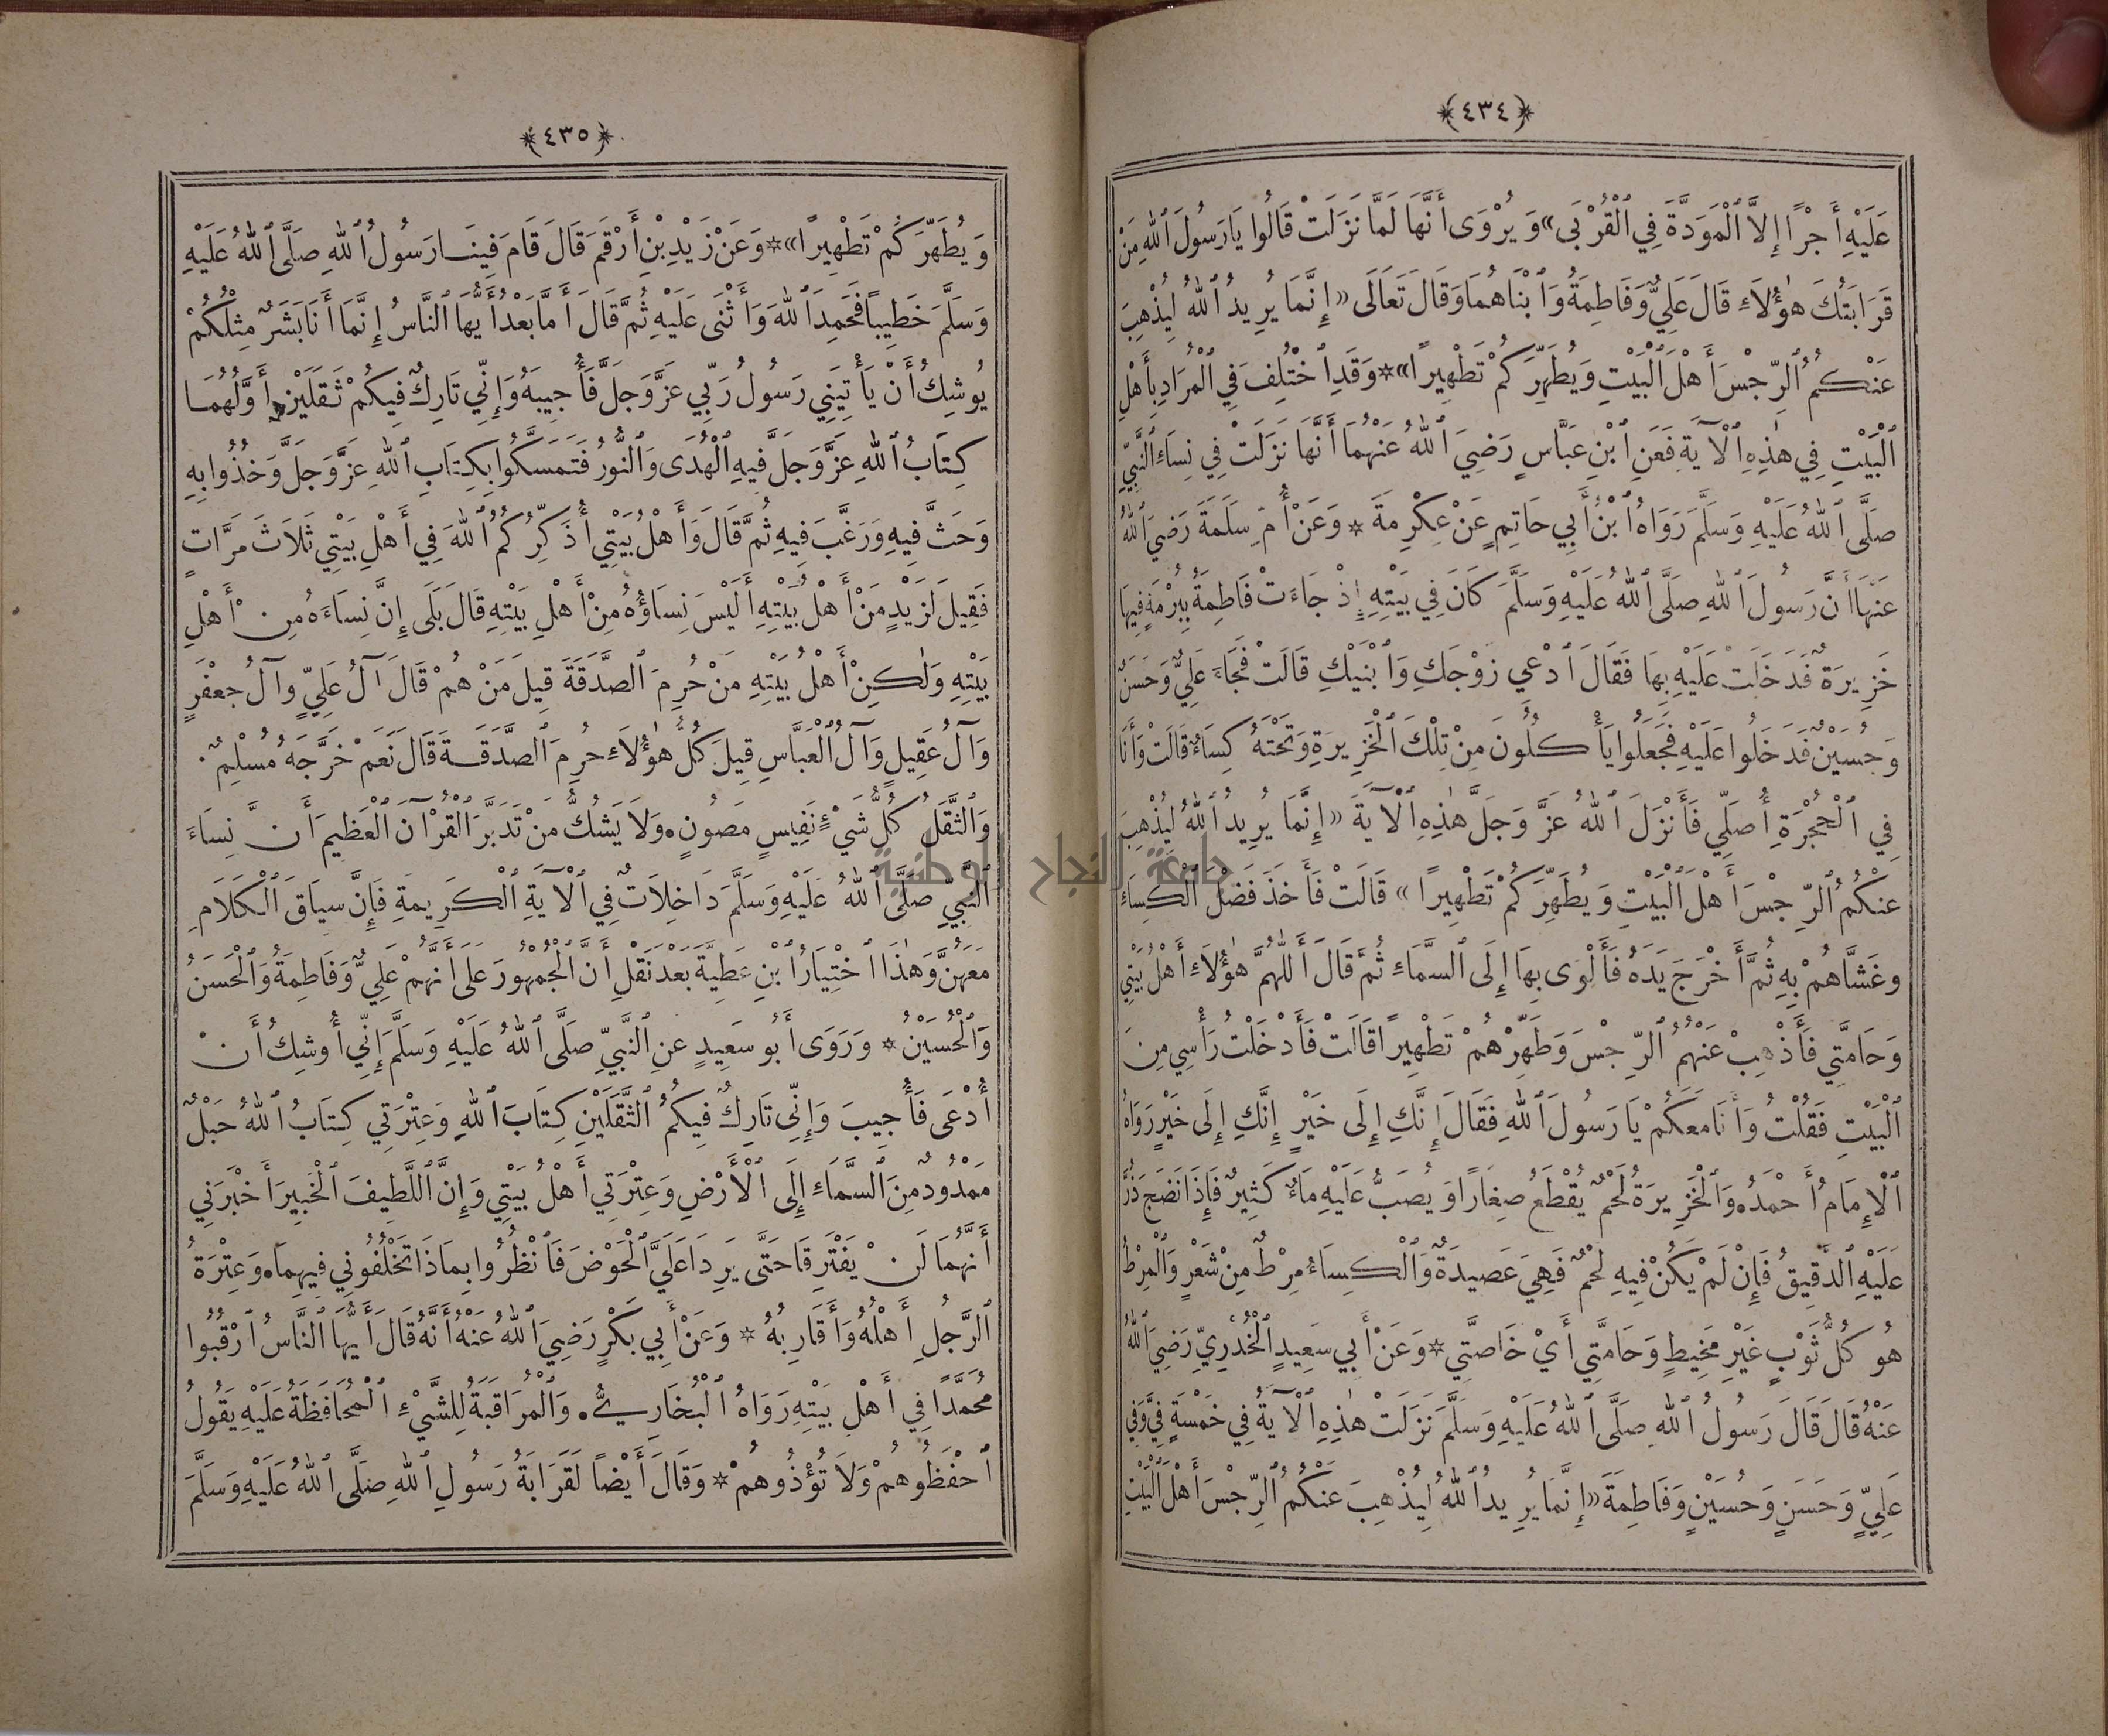 ﴿٤٣٤﴾
عَلَيْهِ أَجْرًا إِلاَّ ٱلْمَوَدَّةَ فِي ٱلْقُرْبَى» وَيُرْوَى أَنَّهَا لَمَّا نَزَلَتْ قَالُوا يَا رَسُولَ ٱللهِ مَنْ
قَرَابَتُكَ هٰؤُلاَءِ قَالَ عَلِيٌّ وَفَاطِمَةُ وَٱبْنَاهُمَا وَقَالَ تَعَالَى «إِنَّمَا يُرِيدُ ٱللهُ لِيُذْهِبَ
عَنْكُمُ ٱلرِّجْسَ أَهْلَ ٱلْبَيْتِ وَيُطَهِّرَكُمْ تَطْهِيرًا»* وَقَدِ ٱخْتُلِفَ فِي ٱلْمُرَادِ بِأَهْلِ
ٱلْبَيْتِ فِي هٰذِهِ ٱلْآيَةِ فَعَنِ ٱبْنِ عَبَّاسٍ رَضِيَ ٱللهُ عَنْهُمَا أَنَّهَا نَزَلَتْ فِي نِسَاءِ ٱلنَّبِيِّ
صَلَّى ٱللهُ عَلَيْهِ وَسَلَّمَ رَوَاهُ ٱبْنُ أَبِي حَاتِمٍ عَنْ عِكْرِمَةَ * وَعَنْ أُمِّ سَلَمَةَ رَضِيَ ٱللهُ
عَنْهَا أَنَّ رَسُولَ ٱللهِ صَلَّى ٱللهُ عَلَيْهِ وَسَلَّمَ كَانَ فِي بَيْتِهِ إِذْ جَاءَتْ فَاطِمَةُ بِبُرْمَةٍ فِيهَا
خَزِيرَةٌ فَدَخَلَتْ عَلَيْهِ بِهَا فَقَالَ ٱدْعِي زَوْجَكِ وَٱبْنَيْكِ قَالَتْ فَجَاءَ عَلِيٌّ وَحَسَنٌ
وَحُسَيْنٌ فَدَخَلُوا عَلَيْهِ فَجَعَلُوا يَأْكُلُونَ مِنْ تِلْكَ ٱلْخَزِيرَةِ وَتَحْتَهُ كِسَاءٌ قَالَتْ وَأَنَا
فِي ٱلْحُجْرَةِ أُصَلِّي فَأَنْزَلَ ٱللهُ عَزَّ وَجَلَّ هٰذِهِ ٱلْآيَةَ «إِنَّمَا يُرِيدُ ٱللهُ لِيُذْهِبَ
عَنْكُمُ ٱلرِّجْسَ أَهْلَ ٱلْبَيْتِ وَيُطَهِّرَكُمْ تَطْهِيرًا» قَالَتْ فَأَخَذَ فَضْلَ ٱلْكِسَاءِ
وغَشَّاهُمْ بِهِ ثُمَّ أَخْرَجَ يَدَهُ فَأَلْوَى بِهَا إِلَى ٱلسَّمَاءِ ثُمَّ قَالَ أَللّٰهُمَّ هٰؤُلاَءِ أَهْلُ بَيْتِي
وَحَامَّتِي فَأَذْهِبْ عَنْهُمُ ٱلرِّجْسَ وَطَهِّرْهُمْ تَطْهِيرًا قَالَتْ فَأَدْخَلْتُ رَأْسِي مِنَ
ٱلْبَيْتِ فَقُلْتُ وَأَنَا مَعَكُمْ يَا رَسُولَ ٱللهِ فَقَالَ إِنَّكِ إِلَى خَيْرٍ إِنَّكِ إِلَى خَيْرٍ رَوَاهُ
ٱلْإِمَامُ أَحْمَدُ. وَٱلْخَزِيرَةُ لَحْمٌ يُقْطَعُ صِغَارًا وَيُصَبُّ عَلَيْهِ مَاءٌ كَثِيرٌ فَإِذَا نَضِجَ ذُرَّ
عَلَيْهِ ٱلدَّقِيقُ فَإِنْ لَمْ يَكُنْ فِيهِ لَحْمٌ فَهِيَ عَصِيدَةٌ وَٱلْكِسَاءُ مِرْطٌ مِنْ شَعْرٍ وَٱلْمِرْطُ
هُوَ كُلُّ ثَوْبٍ غَيْرِ مَخِيطٍ وَحَامَّتِي أَيْ خَاصَّتِي * وَعَنْ أَبِي سَعِيدٍ ٱلْخُدْرِيِّ رَضِيَ ٱللهُ
عَنْهُ قَالَ قَالَ رَسُولُ ٱللهِ صَلَّى ٱللهُ عَلَيْهِ وَسَلَّمَ نَزَلَتْ هٰذِهِ ٱلْآيَةُ فِي خَمْسَةٍ فِيَّ وَفِي
عَلِيٍّ وَحَسَنٍ وَحُسَيْنٍ وَفَاطِمَةَ «إِنَّمَا يُرِيدُ ٱللهُ لِيُذْهِبَ عَنْكُمُ ٱلرِّجْسَ أَهْلَ ٱلْبَيْتِ
﴿٤٣٥﴾
وَيُطَهِّرَكُمْ تَطْهِيرًا»* وَعَنْ زَيْدِ بْنِ أَرْقَمَ قَالَ قَامَ فِينَا رَسُولُ ٱللهِ صَلَّى ٱللهُ عَلَيْهِ
وَسَلَّمَ خَطِيبًا فَحَمِدَ ٱللهَ وَأَثْنَى عَلَيْهِ ثُمَّ قَالَ أَمَّا بَعْدُ أَيُّهَا ٱلنَّاسُ إِنَّمَا أَنَا بَشَرٌ مِثْلُكُمْ
يُوشِكُ أَنْ يَأْتِيَنِي رَسُولُ رَبِّي عَزَّ وَجَلَّ فَأُجِيبَهُ وَإِنِّي تَارِكٌ فِيكُمْ ثَقَلَيْنِ أَوَّلُهُمَا
كِتَابُ ٱللهِ عَزَّ وَجَلَّ فِيهِ ٱلْهُدَى وَٱلنُّورُ فَتَمَسَّكُوا بِكِتَابِ ٱللهِ عَزَّ وَجَلَّ وَخُذُوا بِهِ
وَحَثَّ فِيهِ وَرَغَّبَ فِيهِ ثُمَّ قَالَ وَأَهْلُ بَيْتِي أُذَكِّرُكُمُ ٱللهَ فِي أَهْلِ بَيْتِي ثَلاَثَ مَرَّاتٍ
فَقِيلَ لِزَيْدٍ مَنْ أَهْلُ بَيْتِهِ أَلَيْسَ نِسَاؤُهُ مِنْ أَهْلِ بَيْتِهِ قَالَ بَلَى إِنَّ نِسَاءَهُ مِنْ أَهْلِ
بَيْتِهِ وَلٰكِنْ أَهْلُ بَيْتِهِ مَنْ حُرِمَ ٱلصَّدَقَةَ قِيلَ مَنْ هُمْ قَالَ آلُ عَلِيٍّ وآلُ جَعْفَرٍ
وَآلُ عَقِيلٍ وَآلُ ٱلْعَبَّاسِ قِيلَ كُلُّ هٰؤُلاَءِ حُرِمَ ٱلصَّدَقَةَ قَالَ نَعَمْ خَرَّجَهُ مُسْلِمٌ.
وَٱلثَّقَلُ كُلُّ شَيْءٍ نَفِيسٍ مَصُونٍ. وَلاَ يَشُكُّ مَنْ تَدَبَّرَ ٱلْقُرْآنَ ٱلْعَظِيمَ أَنَّ نِسَاءَ
ٱلنَّبِيِّ صَلَّى ٱللهُ عَلَيْهِ وَسَلَّمَ دَاخِلاَتٌ فِي ٱلْآيَةِ ٱلْكَرِيمَةِ فَإِنَّ سِيَاقَ ٱلْكَلاَمِ
مَعَهُنَّ وَهٰذَا ٱخْتِيَارُ ٱبْنِ عَطِيَّةَ بَعْدَ نَقْلِ أَنَّ ٱلْجُمْهُورَ عَلَى أَنَّهُمْ عَلِيٌّ وَفَاطِمَةُ وَٱلْحَسَنُ
وَٱلْحُسَيْنُ * وَرَوَى أَبُو سَعِيدٍ عَنِ ٱلنَّبِيِّ صَلَّى ٱللهُ عَلَيْهِ وَسَلَّمَ إِنِّي أُوشِكُ أَنْ
أُدْعَى فَأُجِيبَ وَإِنِّي تَارِكٌ فِيكُمُ ٱلثَّقَلَيْنِ كِتَابَ ٱللهِ وَعِتْرَتِي كِتَابُ ٱللهُ حَبْلٌ
مَمْدُودٌ مِنَ ٱلسَّمَاءِ إِلَى ٱلْأَرْضِ وَعِتْرَتِي أَهْلُ بَيْتِي وَإِنَّ ٱللَّطِيفَ ٱلْخَبِيرَ أَخْبَرَنِي
أَنَّهُمَا لَنْ يَفْتَرِقَا حَتَّى يَرِدَا عَلَيَّ ٱلْحَوْضَ فَٱنْظُرُوا بِمَاذَا تَخْلُفُونِي فِيهِمَا. وَعِتْرَةُ
ٱلرَّجُلِ أَهْلُهُ وَأَقَارِبُهُ * وَعَنْ أَبِي بَكْرٍ رَضِيَ ٱللهُ عَنْهُ أَنَّهُ قَالَ أَيُّهَا ٱلنَّاسُ ٱرْقُبُوا
مُحَمَّدًا فِي أَهْلِ بَيْتِهِ رَوَاهُ ٱلْبُخَارِيُّ. وَٱلْمُرَاقَبَةُ لِلشَّيْءِ ٱلْمُحَافَظَةُ عَلَيْهِ يَقُولُ
ٱحْفَظُوهُمْ وَلاَ تُؤْذُوهُمْ * وَقَالَ أَيْضًا لَقَرَابَةُ رَسُولِ ٱللهِ صَلَّى ٱللهُ عَلَيْهِ وَسَلَّمَ
جامعة النجاح الوطنية